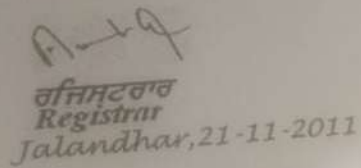 ਰਜਿਸਟਰਾਰ
Registrar
Jalandhar,21-11-2011